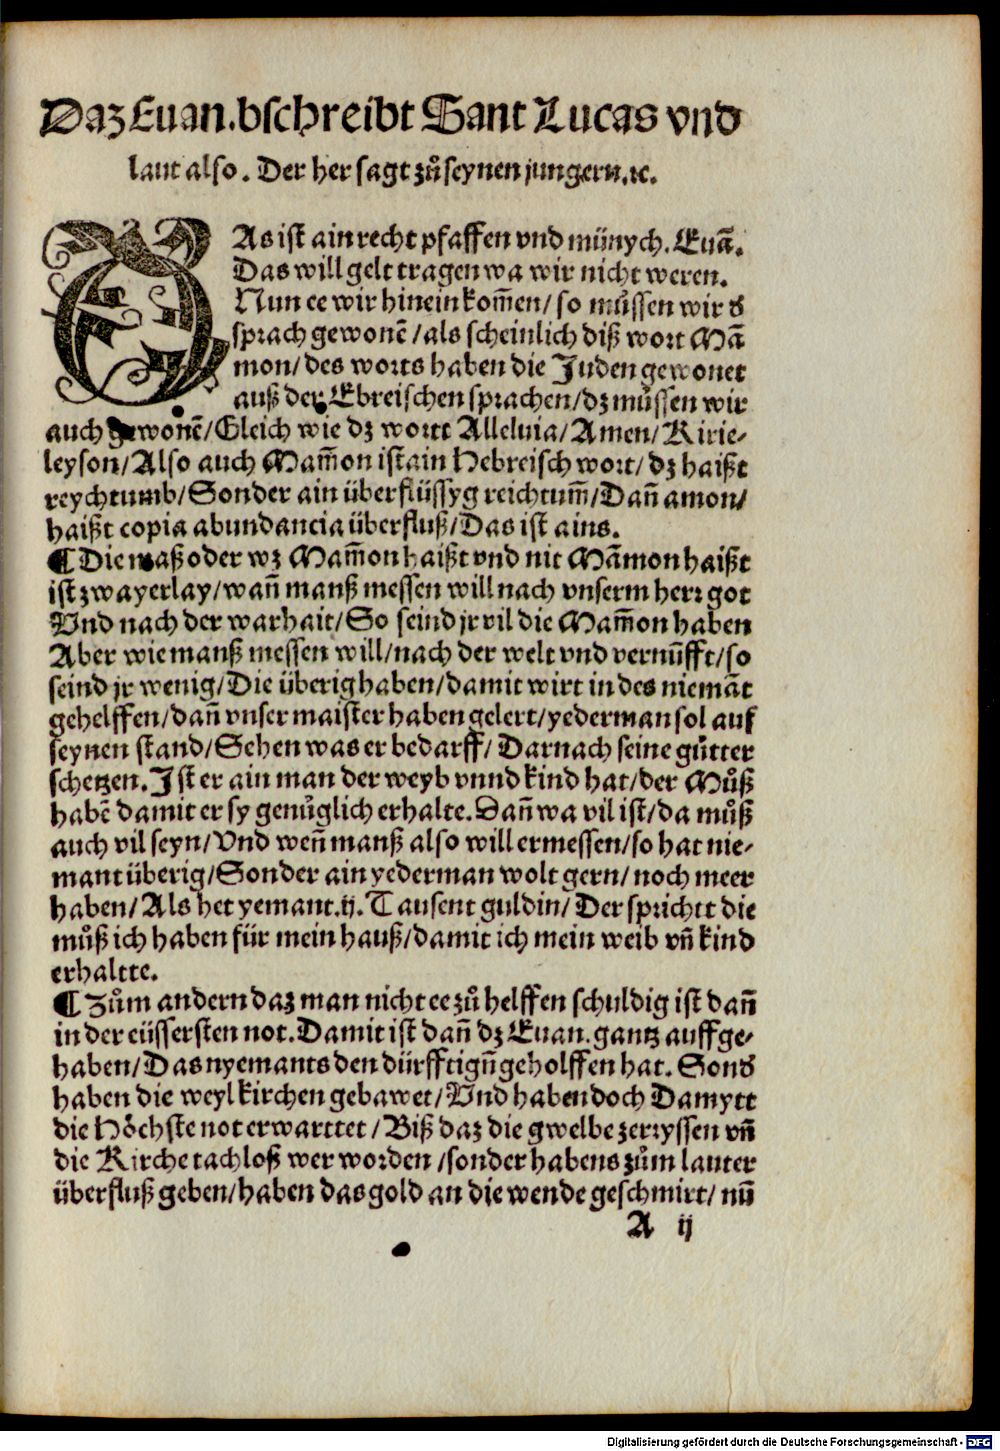 Daz Euan. bschreibt Sant Lucas vnd
laut also. Der her sagt zů seynen jungern. ꝛc.
DAs ist ain recht pfaffen vnd münych. Euā.
Das will gelt tragen wa wir nicht weren.
Nun ee wir hinein kom̃en/ so můssen wir ď
sprach gewonē/ als scheinlich diß wort Mā
mon/ des worts haben die Juden gewonet
auß der Ebreischen sprachen/ dz můssen wir
auch gewonē/ Gleich wie dz wortt Alleluia/ Amen/ Kirie-
leyson/ Also auch Mam̃on ist ain Hebreisch wort/ dz haißt
reychtumb/ Sonder ain überflüssyg reichtum̃/ Dañ amon/
haißt copia abundancia überfluß/ Das ist ains.
¶ Die maß oder wz Mam̃on haißt vnd nit Mām̃on haißt
ist zwayerlay/ wañ manß messen will nach vnserm herr got
Vnd nach der warhait/ So seind jr vil die Mam̃on haben
Aber wie manß messen will/ nach der welt vnd vernūfft/ so
seind jr wenig/ Die überig haben/ damit wirt in des niemāt
gehelffen/ dañ vnser maister haben gelert/ yederman sol auf
seynen stand/ Sehen was er bedarff/ Darnach seine gůtter
schetzen. Ist er ain man der weyb vnnd kind hat/ der Můß
habē damit er sy genůglich erhalte. Dañ wa vil ist/ da můß
auch vil seyn/ Vnd weñ manß also will ermessen/ so hat nie-
mant überig/ Sonder ain yederman wolt gern/ noch meer
haben/ Als het yemant .ij. Tausent guldin/ Der sprichtt die
můß ich haben für mein hauß/ damit ich mein weib vñ kind
erhaltte.
¶ Zům andern daz man nicht ee zů helffen schuldig ist dañ
in der eüssersten not. Damit ist dañ dz Euan. gantz auffge-
haben/ Das nyemants den dürfftigñ geholffen hat. Sonď
haben die weyl kirchen gebawet/ Vnd haben doch Damytt
die Höchste not erwarttet/ Biß daz die gwelbe zerryssen vñ
die Kirche tachloß wer worden/ sonder habens zům lauter
überfluß geben/ haben das gold an die wende geschmirt/ nū
A ij
Digitalisierung gefördert durch die Deutsche Forschungsgemeinschaft - DFG